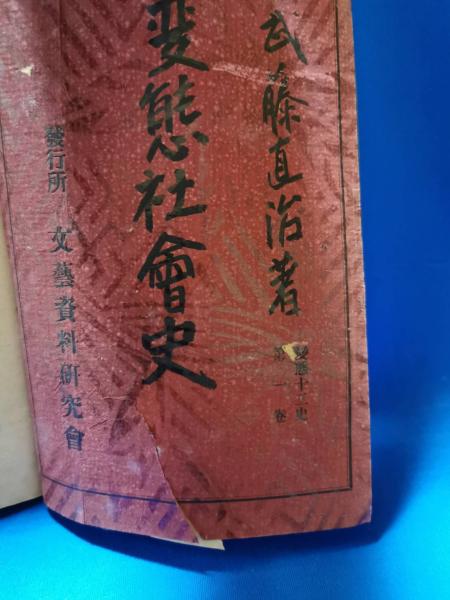 武藤直治著
變態十二史
第一卷
變態社會史
發行所 文藝資料研究會